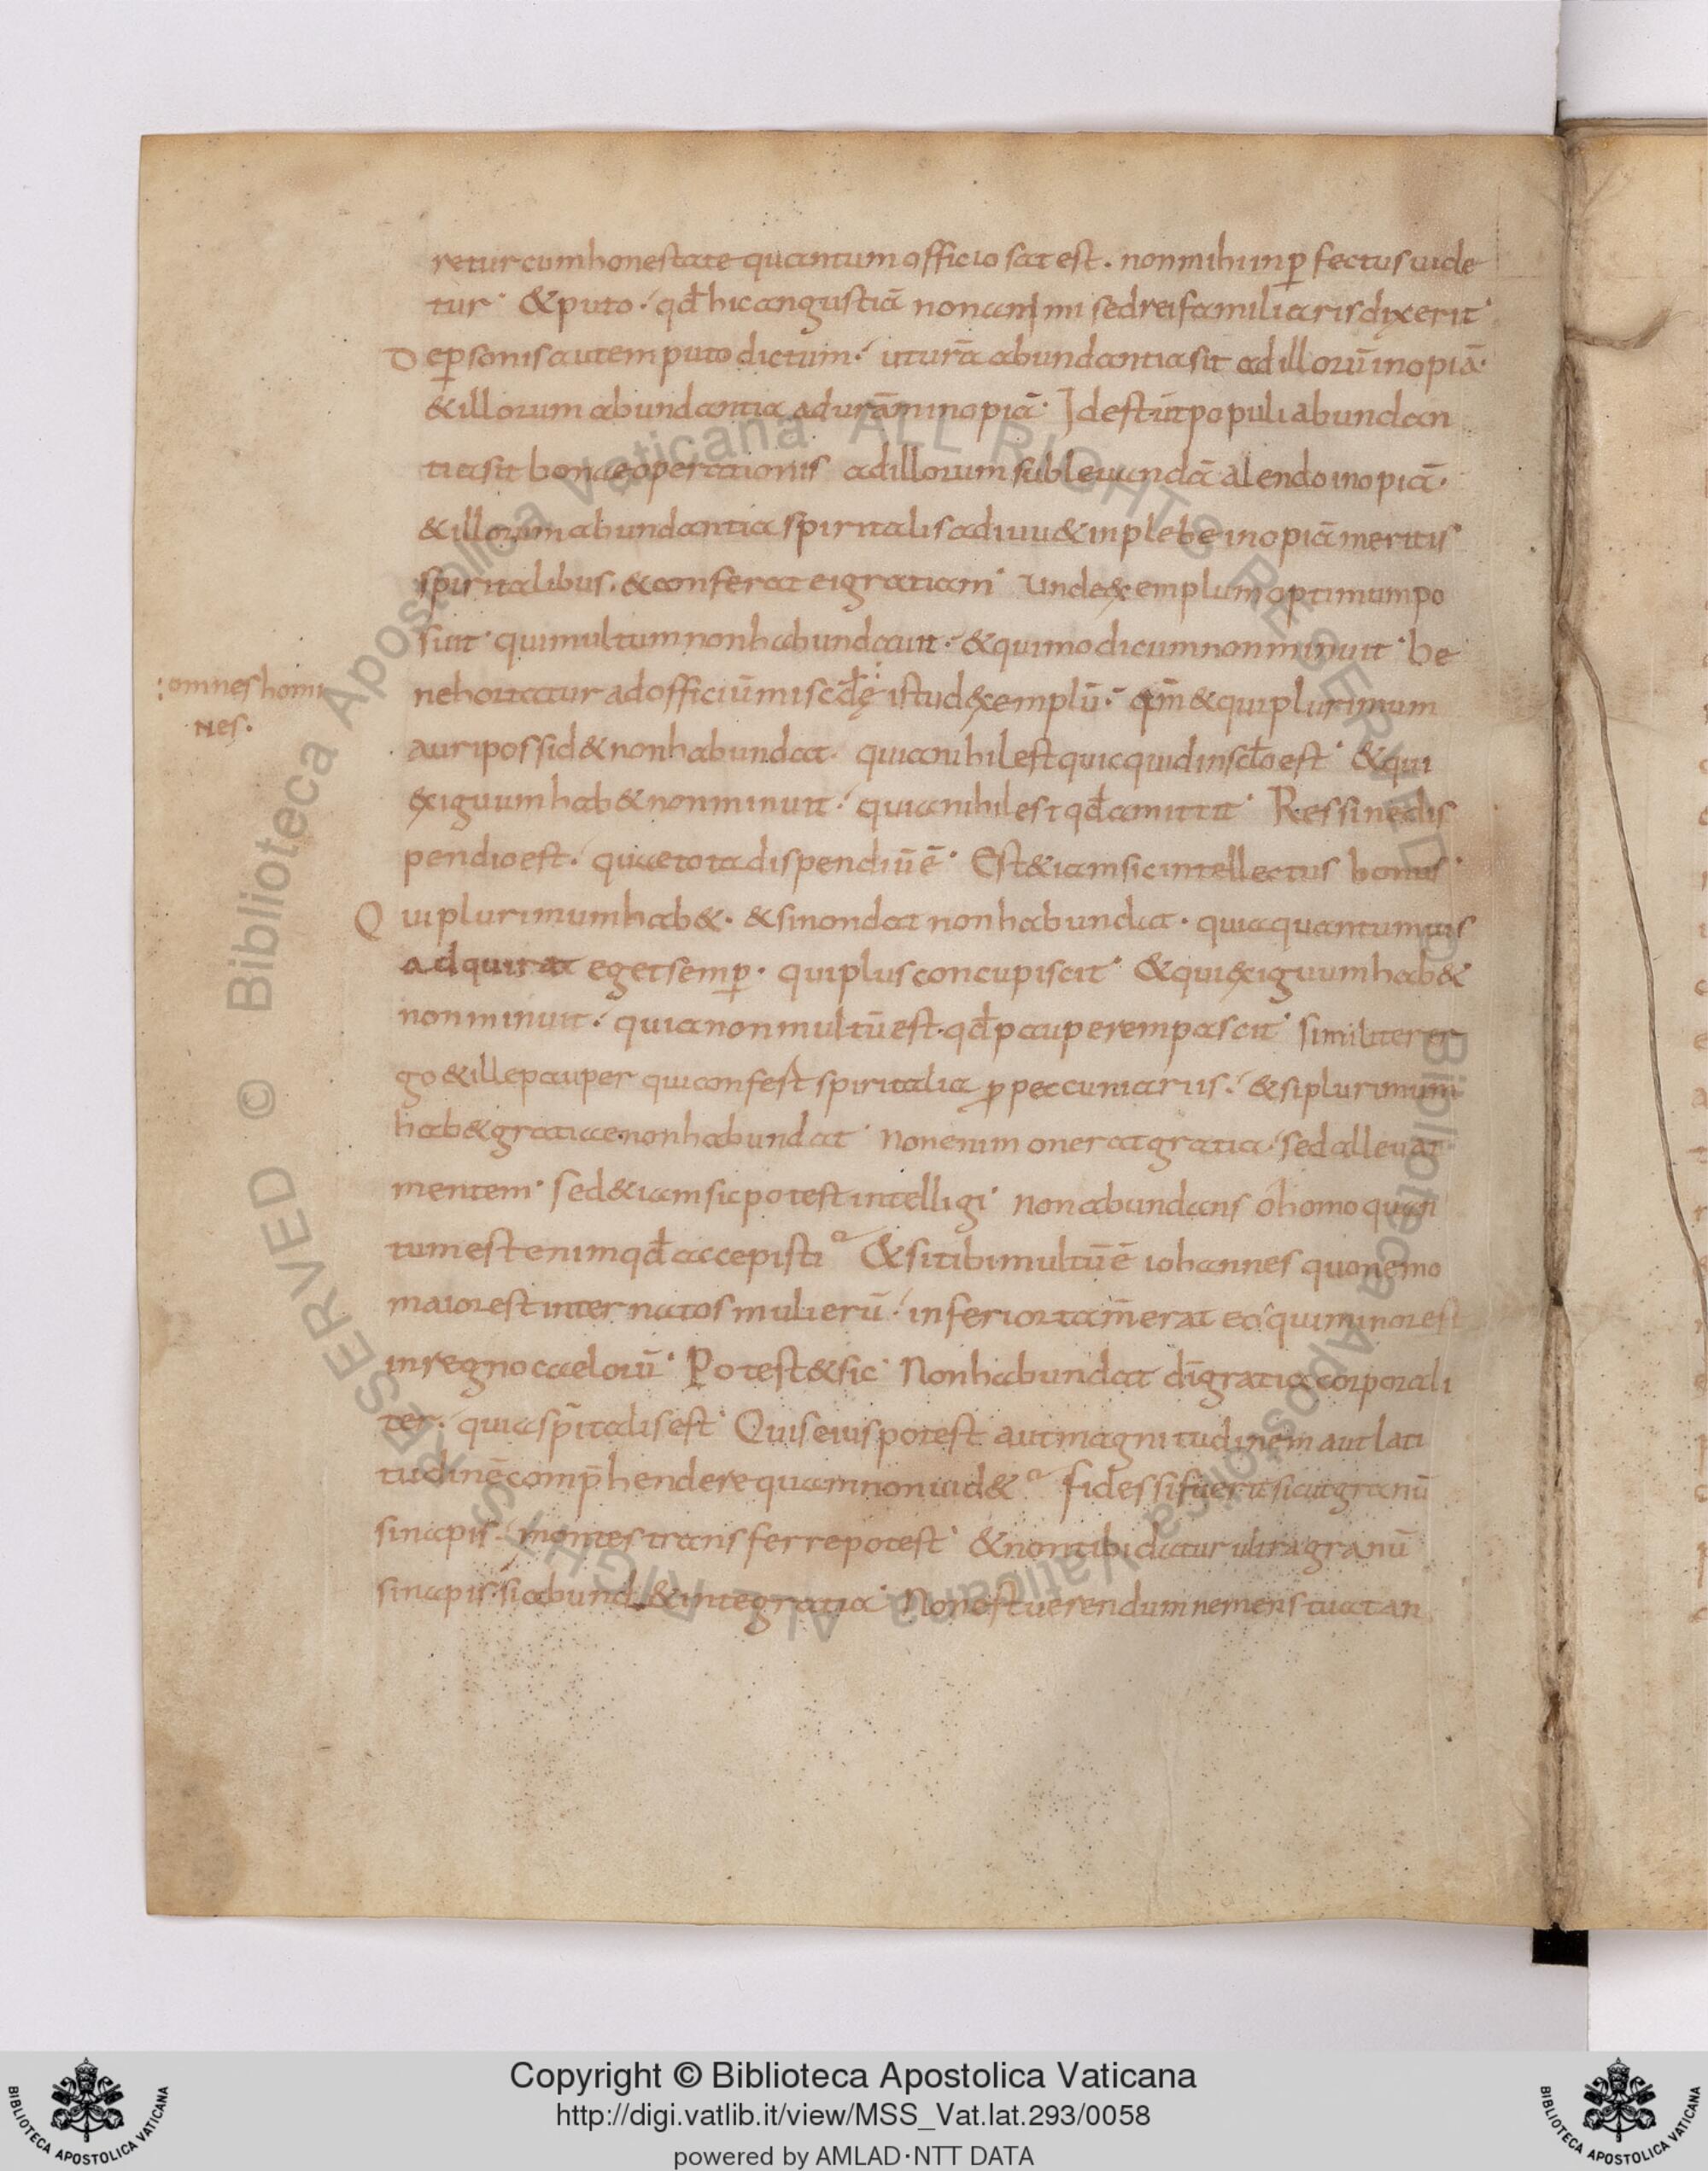 retur cum honestate quantum officio sat est. non mihi inp̱fectus uide
tur· & puto· qđ hic angustiā non animi sed rei familiaris dixerit·
De p̱sonis autem puto dictum· ut urā abundantia sit ad illorū inopiā·
& illorum abundantia ad urām inopiā· Id est ut populi abundan
tia sit bonae operationis ad illorum subleuandā alendo inopiā·
& illorum abundantia spiritalis adiuu& in plebe inopiā meritis
spiritalibus. & conferat ei gratiam· unde exemplum optimum po
suit· qui multum non habundauit· & qui modicum non minuit· be
ne hortatur ad officiū misc̄dę istud exemplū· qm̄ & qui plurimum
:omnes homi
nes.
auri possid& non habundat· quia nihil est quicquid in sc̄lo est· & qui
exiguum hab& non minuit· quia nihil est qđ amittit· Res sine dis
pendio est· quae tota dispendiū ē· Est & iam sic intellectus bonus·
Qui plurimum hab&. & si non dat non habundat· quia quantumuis
adquirat eget semp̱· qui plus concupiscit· & qui exiguum hab&
non minuit· quia non multū est· qđ pauperem pascit· similiter er
go & ille pauper qui confert spiritalia p̱ peccuniariis· & si plurimum
hab& gratiae· non habundat· non enim onerat gratia· sed alleuat
mentem· sed & iam sic potest intelligi· non abundans o homo quan
tum est enim qđ accepisti? & si tibi multū ē iohannes quo nemo
maior est inter natos mulierū· inferior tam̄ erat eo· qui minor est
in regno caelorū· Potest & sic· Non habundat dī gratia corporali
ter· quia sp̄italis est· Quis eius potest aut magnitudinem aut lati
tudinē comp̄hendere quam non uid&? fides si fuerit sicut granū
sinapis· montes transferre potest· & non tibi datur ultra granū
sinapis· si abund& in te gratia· Non est uerendum ne mens tua tan
Copyright © Biblioteca Apostolica Vaticana
http://digi.vatlib.it/view/MSS_Vat.lat.293/0058
powered by AMLAD·NTT DATA
BIBLIOTECA APOSTOLICA VATICANA
BIBLIOTECA APOSTOLICA VATICANA
© Biblioteca Apostolica Vaticana ALL RIGHTS RESERVED
© Biblioteca Apostolica Vaticana ALL RIGHTS RESERVED